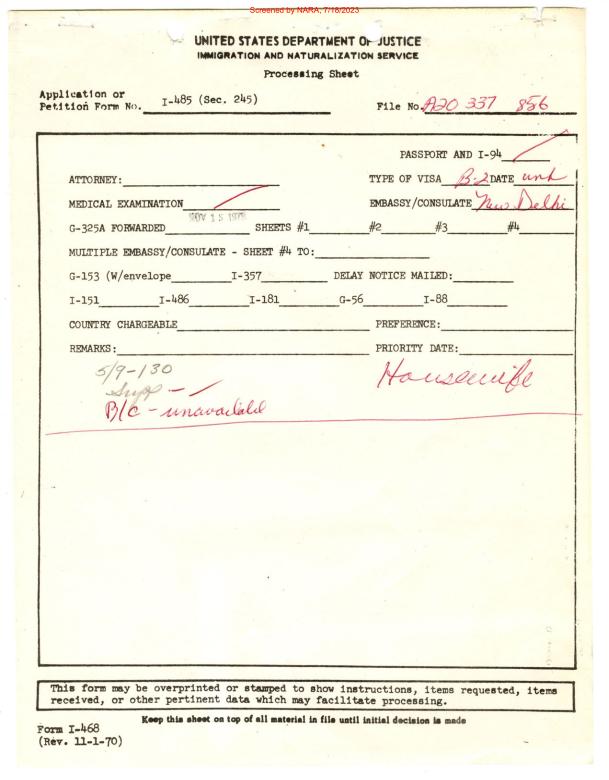 Screened by NARA, 7/18/2023
UNITED STATES DEPARTMENT OF JUSTICE
IMMIGRATION AND NATURALIZATION SERVICE
Processing Sheet
Application or
Petition Form No. I-485 (Sec. 245) File No. A20 337 856
PASSPORT AND I-94
ATTORNEY: TYPE OF VISA B-2 DATE unk
MEDICAL EXAMINATION EMBASSY/CONSULATE New Delhi
NOV 15
G-325A FORWARDED SHEETS #1 #2 #3 #4
MULTIPLE EMBASSY/CONSULATE - SHEET #4 TO:
G-153 (W/envelope I-357 DELAY NOTICE MAILED:
I-151 I-486 I-181 G-56 I-88
COUNTRY CHARGEABLE PREFERENCE:
REMARKS: PRIORITY DATE:
5/9-130 Housewife
Supp -
B/C - unavailable
This form may be overprinted or stamped to show instructions, items requested, items
received, or other pertinent data which may facilitate processing.
Keep this sheet on top of all material in file until initial decision is made
Form I-468
(Rev. 11-1-70)